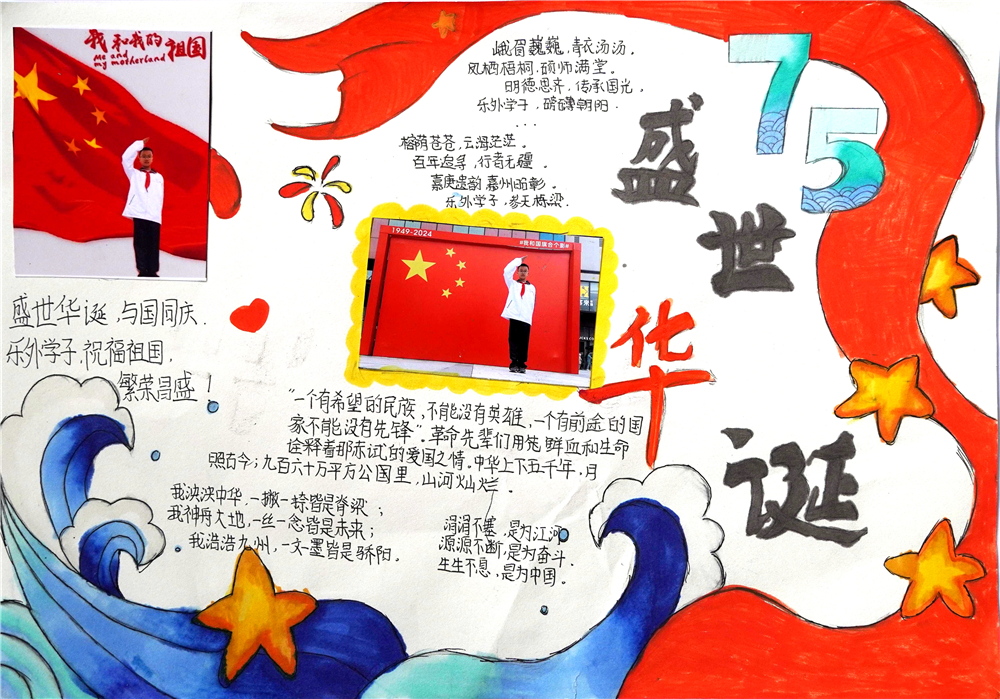 我和我的祖国
me and
my motherland
峨眉巍巍，青衣汤汤。
凤栖梧桐，硕师满堂。
明德思齐，传承国光，
乐外学子，磅礴朝阳．
...
榕荫苍苍，云海茫茫。
百年追寻，行者无疆。
嘉庚遗韵 嘉州昭彰．
乐外学子，参天栋梁．
75
盛世华诞
1949-2024
#我和国旗合个影#
盛世华诞，与国同庆．
乐外学子，祝福祖国，
繁荣昌盛！
“一个有希望的民族，不能没有英雄，一个有前途的国
家不能没有先锋”。革命先辈们用他鲜血和生命
诠释着那赤诚的爱国之情。中华上下五千年，月
照古今；九百六十万平方公国里，山河灿烂。
我泱泱中华，一撇一捺皆是脊梁；
我神舟大地，一丝一念皆是未来；
我浩浩九州，一文一墨皆是骄阳。
涓涓不塞，是为江河
源源不断，是为奋斗．
生生不息，是为中国。